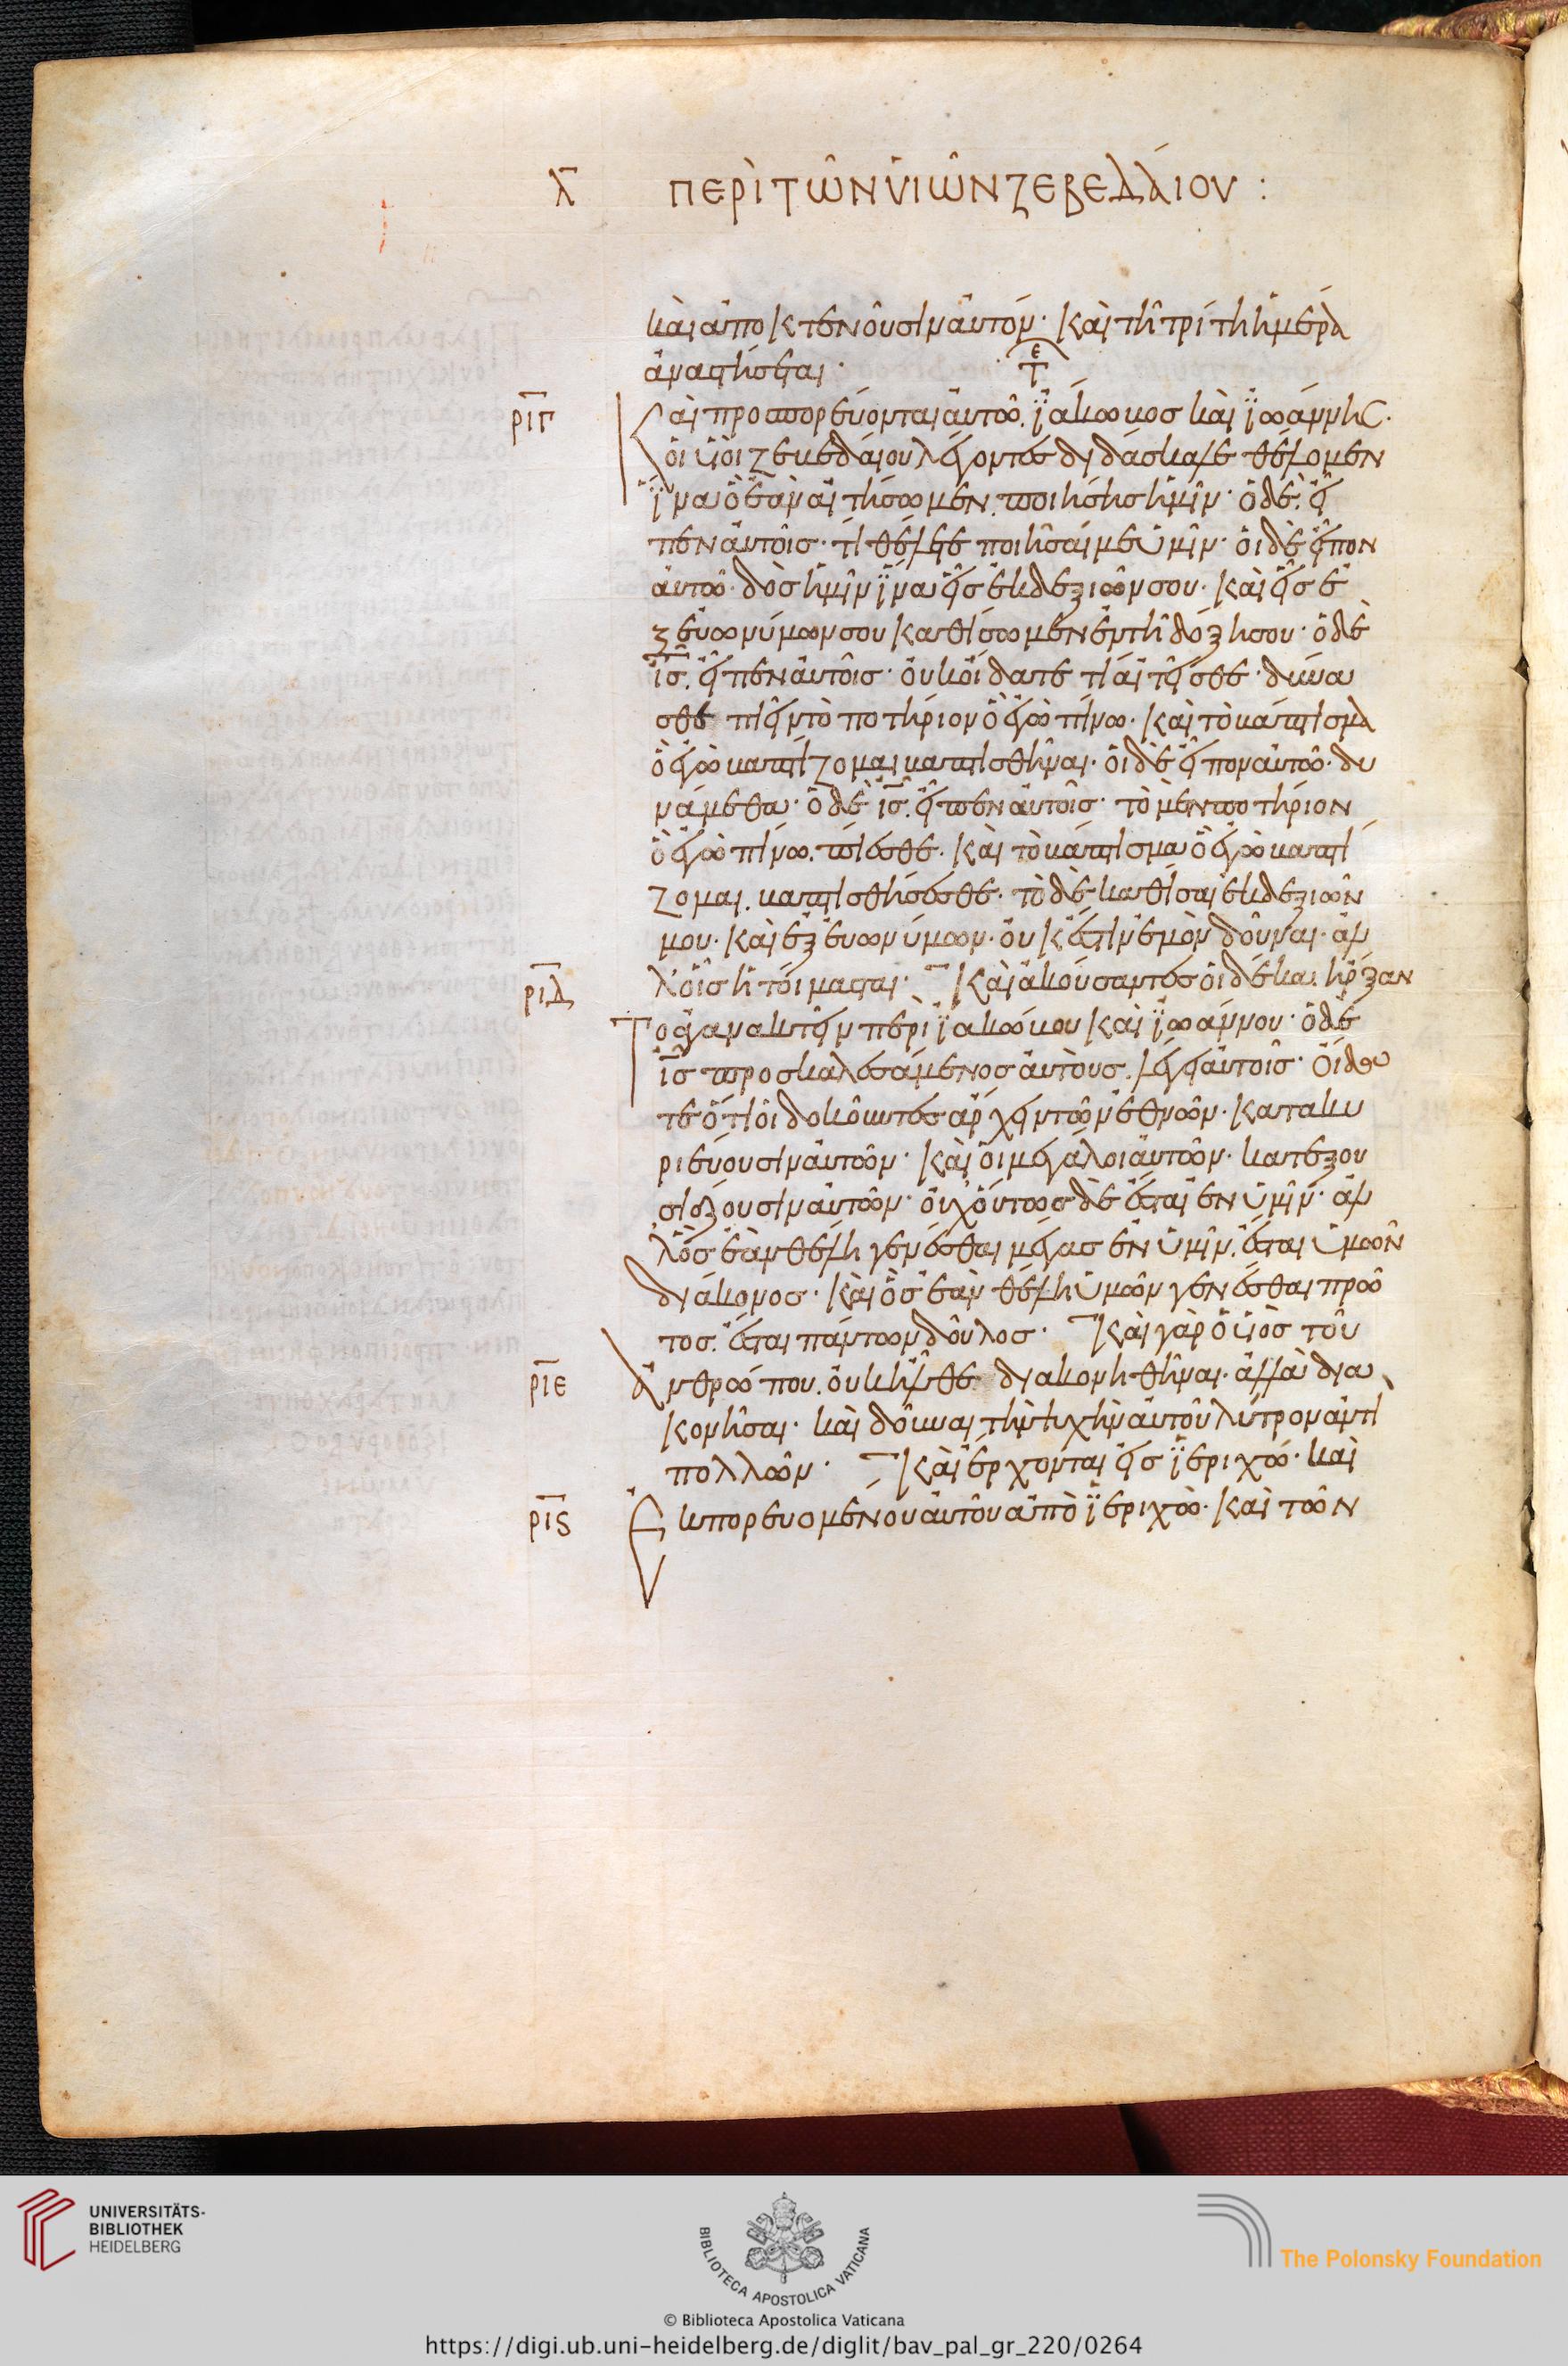 λ ΠΕΡῚ ΤΩ͂Ν ΥἹΩ͂Ν ΖΕΒΕΔΑΊΟΥ :
καὶ ἀποκτενοῦσιν αὐτόν· καὶ τῆ τρίτη ἡμέρα
ἀναστήσεται· τε
ριγ Καὶ προσπορεύονται αὐτῶ. ϊάκωβος καὶ ϊωάννης.
οἱ υἱοὶ ζεβεδαίου λέγοντες διδάσκαλε θέλομεν
ἵνα ὃ ἐὰν αἰτήσωμεν. ποιήσης ἡμῖν· ὁ δὲ. εἶ
πεν αὐτοῖς· τί θέλετε ποιῆσαί με ὑμῖν· οἱ δὲ εἶπον
αὐτῶ· δὸς ἡμῖν ἵνα εἷς ἐκ δεξιῶν σου· καὶ εἷς ἐ
ξ εὐωνύμων σου καθίσωμεν ἐν τῆ δόξη σου· ὁ δὲ
ις. εἶπεν αὐτοῖς· οὐκ οἴδατε τί αἰτεῖσθε· δύνα
σθε πιεῖν τὸ ποτήριον ὃ ἐγὼ πίνω· καὶ τὸ βάπτισμα
ὃ ἐγὼ βαπτίζομαι βαπτισθῆναι· οἱ δὲ εἶπον αὐτῶ· δυ
νάμεθα· ὁ δὲ ις. εἶπεν αὐτοῖς· τὸ μὲν ποτήριον
ὃ ἐγὼ πίνω. πίεσθε· καὶ τὸ βάπτισμα ὃ ἐγὼ βαπτί
ζομαι. βαπτισθήσεσθε· τὸ δὲ καθίσαι ἐκ δεξιῶν
μου· καὶ ἐξ ευωνύμων· οὐκ ἔστιν ἐμὸν δοῦναι· ἀλ
λ' οἷς ἡτοίμασται· Καὶ ἀκούσαντες οἱ δέκα. ἤρξαν
ριδ Το ἀγανακτεῖν περὶ ϊακώβου καὶ ϊωάννου· ὁ δὲ
ις προσκαλεσάμενος αὐτοὺς. λέγει αὐτοῖς· οἴδα
τε ὅτι οἱ δοκοῦντες ἄρχειν τῶν ἐθνῶν· κατακυ
ριεύουσιν αὐτῶν· καὶ οἱ μεγάλοι αὐτῶν· κατεξου
σιάζουσιν αὐτῶν· οὐχ οὕτως δὲ ἔσται ἐν ὑμῖν· ἀλ
λ' ὃς ἐὰν θέλη γενέσθαι μέγας ἐν ὑμῖν. ἔσται ὑμῶν
διάκονος· καὶ ὃς ἐὰν θέλη ὑμῶν γενέσθαι πρῶ
τος. ἔσται πάντων δοῦλος· Καὶ γὰρ ὁ υἱὸς τοῦ
ριε ἀνθρώπου. οὐκ ἦλθε διακονηθῆναι· ἀλλὰ δια
κονῆσαι· καὶ δοῦναι τὴν ψυχὴν αὐτοῦ λύτρον ἀντὶ
πολλῶν· Καὶ ἔρχονται εἰς ϊεριχώ· καὶ
ριϛ Ἐκπορευομένου αὐτοῦ ἀπὸ ϊεριχὼ· καὶ τῶν
UNIVERSITÄTS-
BIBLIOTHEK
HEIDELBERG
BIBLIOTECA APOSTOLICA VATICANA
The Polonsky Foundation
© Biblioteca Apostolica Vaticana
https://digi.ub.uni-heidelberg.de/diglit/bav_pal_gr_220/0264